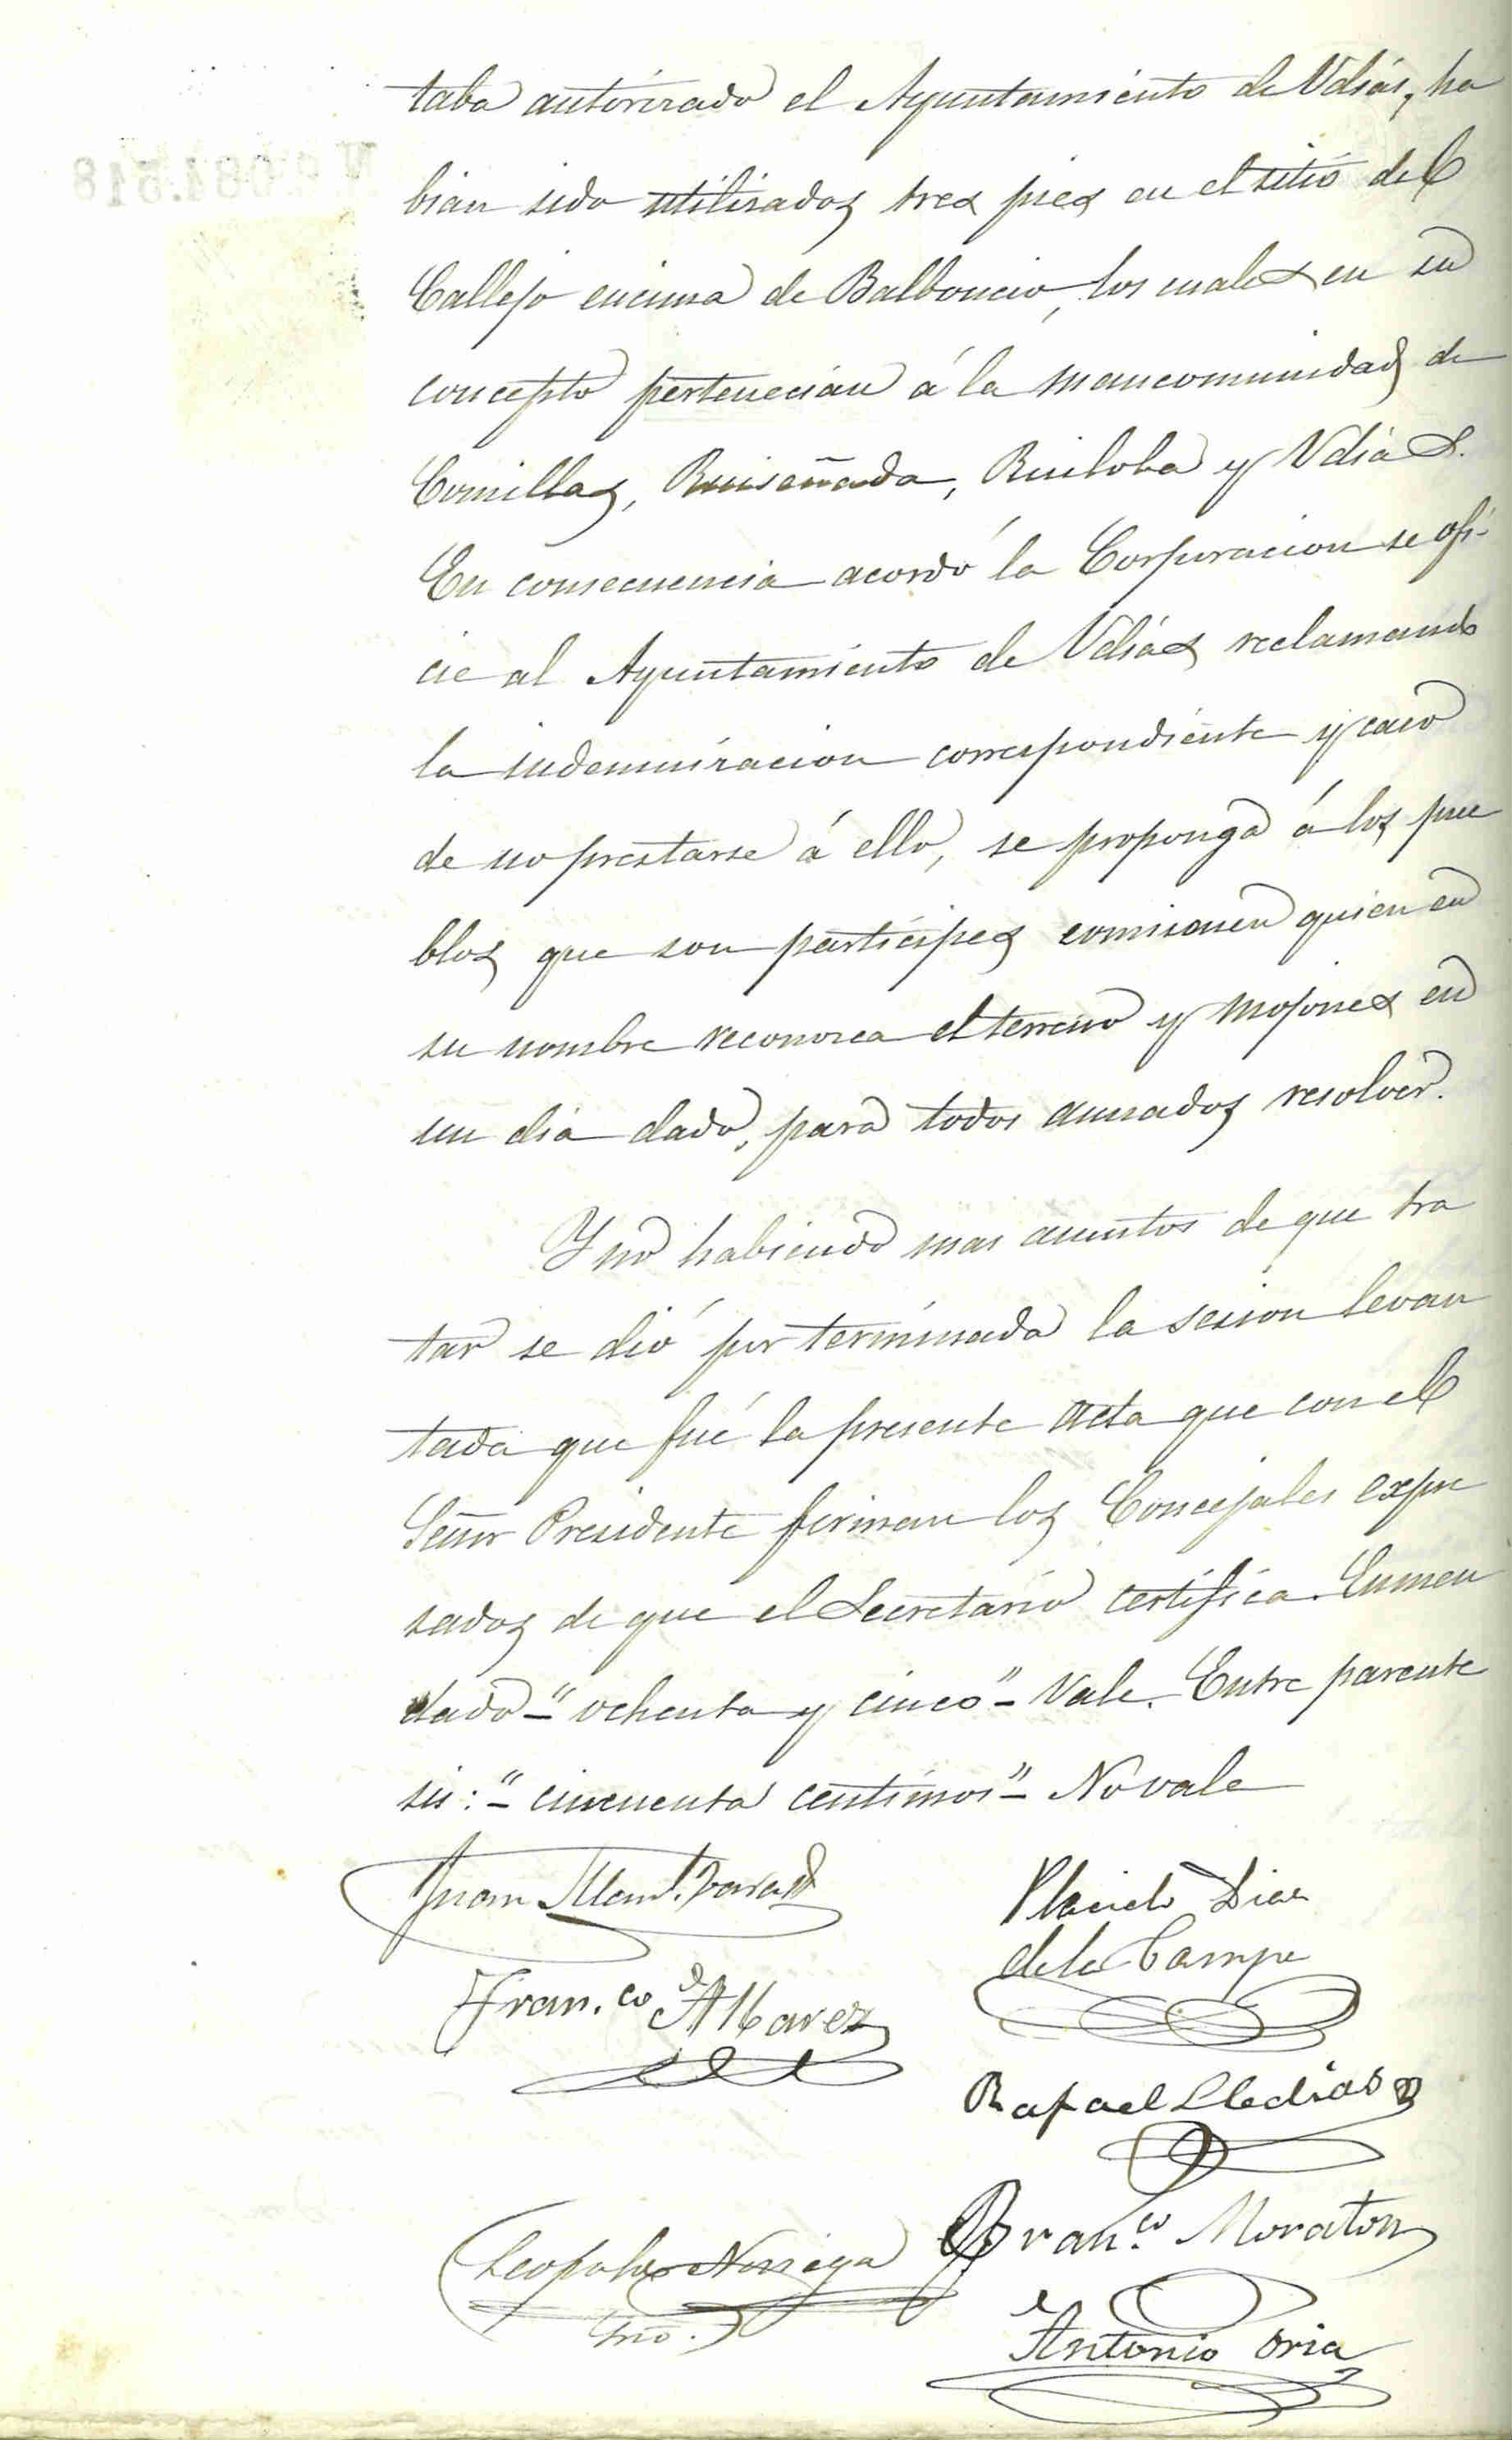 taba autorizado el Ayuntamiento de Udías, ha
bian sido utilizados tres pies en el sitio del
Callejo encima de Balboucio, los cuales en su
concepto pertenecían á la mancomunidad de
Comillas, Ruiseñada, Ruiloba y Udías.
En consecuencia acordó la Corporacion se ofi-
cie al Ayuntamiento de Udías reclamando
la indemnizacion correspondiente y caso
de no prestarse á ello, se proponga á los pue
blos que son partícipes comisionen quien en
su nombre reconozca el terreno y mojones en
un dia dado, para todos aunados resolver.
Y no habiendo mas asuntos de que tra
tar se dió por terminada la sesion levan
tada que fué la presente acta que con el
Señor Presidente firman los Concejales expre
sados de que el Secretario certifica. Enmen
dado - "ochenta y cinco" - Vale. Entre parente
sis: - "cincuenta centimos" - No vale
Juan
Placido Diaz
de la Campa
Fran.co Alvarez
Rafael Lledias
Leopoldo Noriega
Srio.
Fran.co Moraton
Antonio Oria